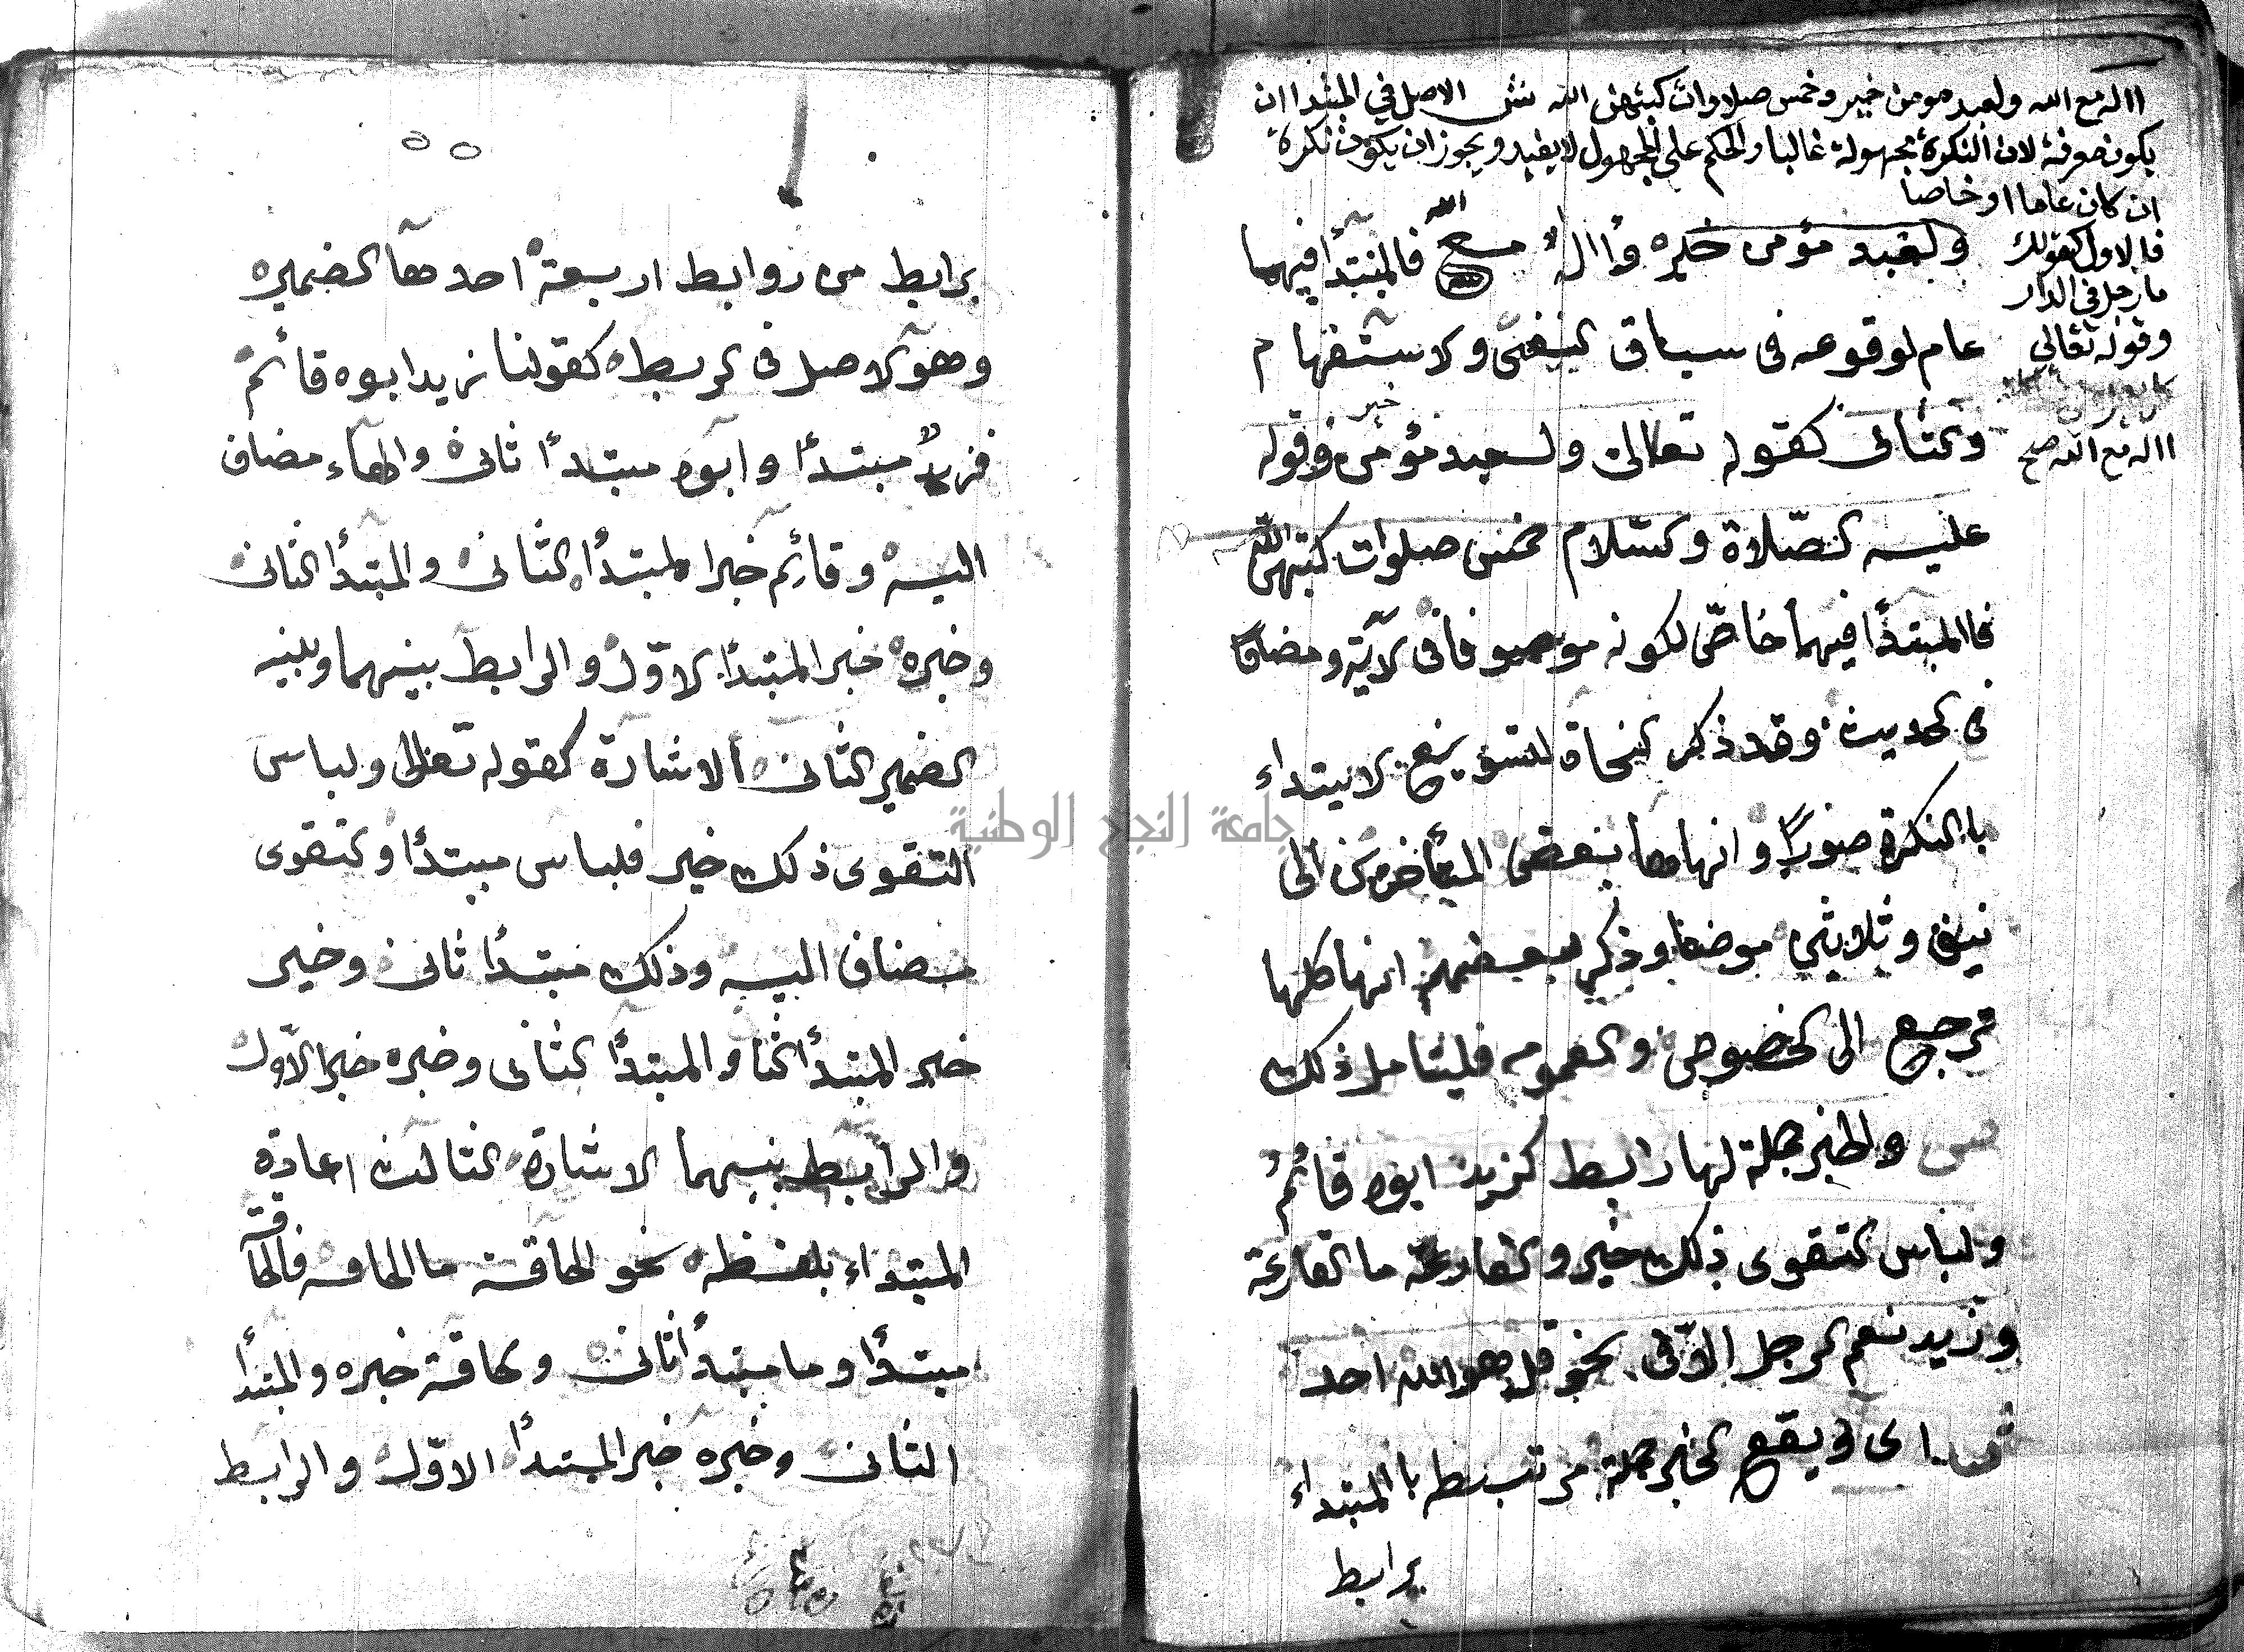 االه مع الله ولعبد مومن خير وخمس صلاوات كبتهن الله ش الاصل في المبتدا ان
يكون معرفة لان النكرة مجهولة غالبا والحكم على المجهول لا يفيد ويجوز ان يكون نكرة
ان كان عاما او خاصا
فالاول كقولك
ما رجل في الدار
وقوله تعالى
االه مع الله صح
ولعبد مؤمن خير وأاله مع الله فالمبتدأ فيهما
عام لوقوعه فى سياق النفى والاستفهام
والثانى كقوله تعالى ولعبد مؤمن خير وقوله
عليه الصّلاة والسّلام خمس صلوات كبتهن اللّه
فاالمبتدأ فيهما خاصّ لكونه موصوفا فى الآية ومضافا
فى الحديث وقد ذكر النحاة لتسويغ الابتداء
باالنكرة صورًا وانهاها بعض المتأخرين الى
نيف وثلاثين موضعا وذكر بعضهم انها كلها
ترجع الى الخصوص والعموم فليتامل ذلك
ص والخبر جملة لها رابط كزيد ابوه قائمٌ
ولباس التقوى ذلك خير والقارعة ما القارعة
وزيد نعم الرجل الا فى نحو قل هو الله احد
ش اى ويقع الخبر جملة مرتبطه باالمبتداء
برابط
برابط من روابط اربعة احدها الضمير
وهو الاصل فى الربط كقولنا زيد ابوه قائم
فزيدٌ مبتدأ وابوه مبتدأ ثان والهاء مضاف
اليه وقائم خبر المبتدأ الثانى والمبتدأ الثان
وخبره خبر المبتدأ الاوّل والرابط بينهما وبينه
الضمير الثان الاشارة كقوله تعالى ولباس
التقوى ذلك خير فلباس مبتدأ والتقوى
مضاف اليه وذلك مبتدأ ثان وخير
خبر المبتدأ الثا والمبتدأ الثانى وخبره خبر الاوّل
والرابط بينهما الاشارة الثالث اعادة
المبتداء بلفظه نحو الحاقة ما الحاقه فالحاقة
مبتدأ وما مبتدأ ثان والحاقة خبره والمبتدأ
الثان وخبره خبر المبتدأ الاوّل والرابط
جامعة النجاح الوطنية